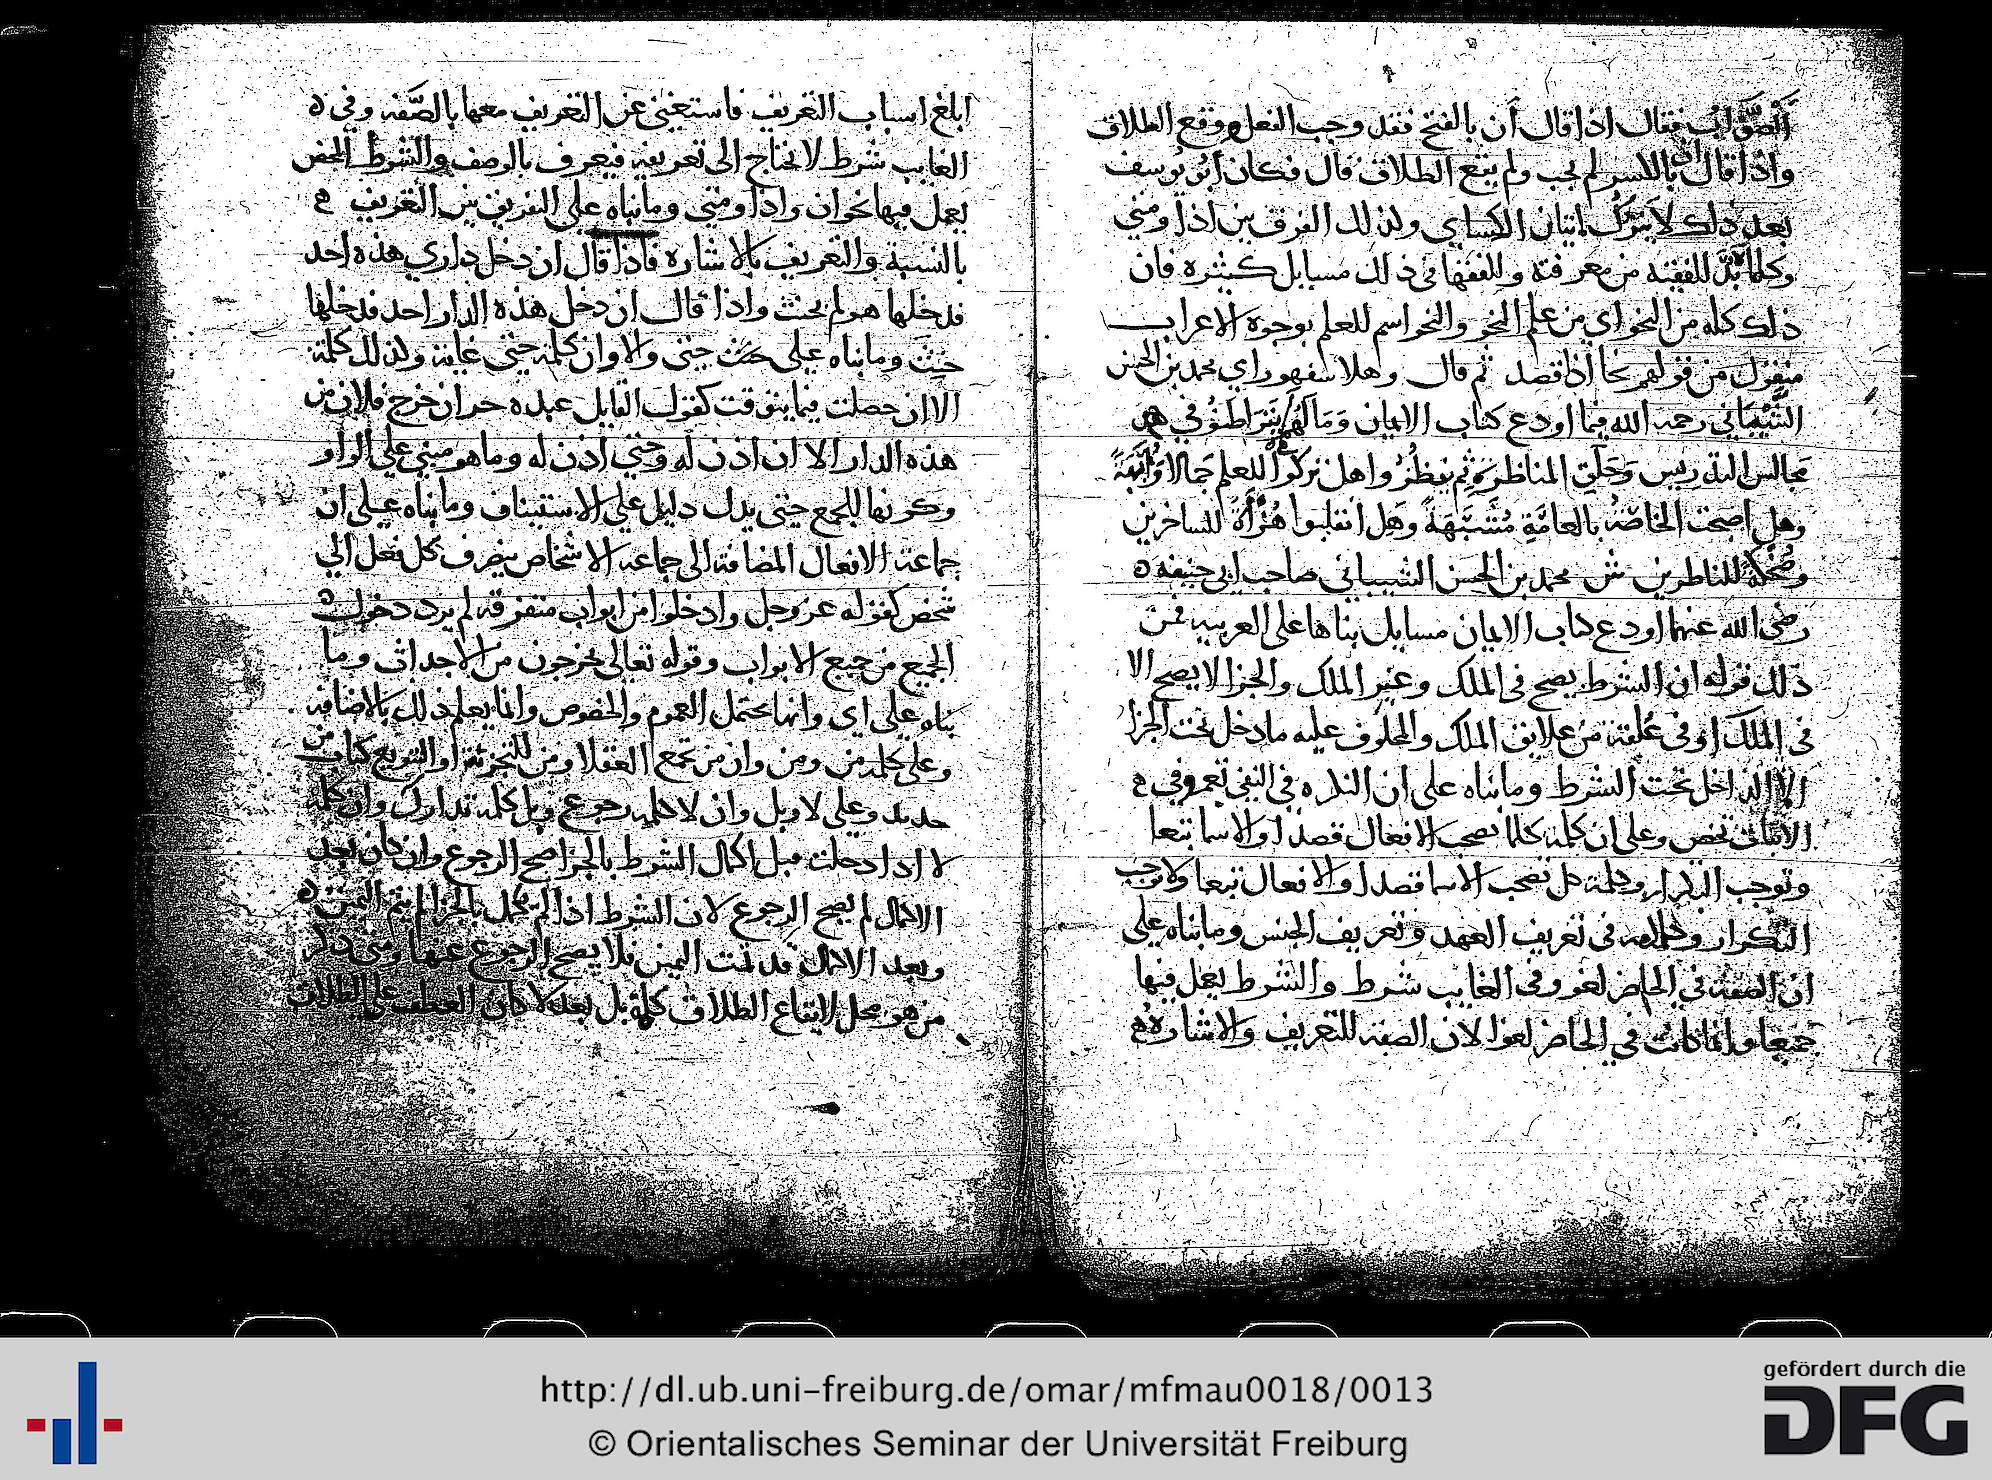 الصواب فقال اذا قال أن بالفتح فقد وجب الفعل ووقع الطلاق
واذا قال ان بالكسر لم يجب ولم يقع الطلاق قال فكان أبو يوسف
بعد ذلك لا يترك اتيان الكساي وكذلك الفرق بين اذا ومتى
وكلما بد للفقيه من معرفته وللفقها في ذلك مسايل كثيرة فان
ذلك كله من النحو اي من علم النحو والنحو اسم للعلم بوجوه الاعراب
منقول من قولهم نحا اذا قصد ثم قال وهلا سفهو راي محمد بن الحسن
الشيباني رحمه الله فيما اودع كتاب الايمان وما لهم يتراطنو في
مجالس التدريس وحلق المناظرة ثم ينظرو اهل تركوا للعلم جمالا وأبهة
وهل اصبحت الخاصة بالعامة متشبهة وهل انقلبوا هزأة للساخرين
وضحكة للناظرين ش محمد بن الحسن الشيباني صاحب ابي حنيفه ه
رضي الله عنهما اودع كتاب الايمان مسايل بناها على العربيه فمن
ذلك قوله ان الشرط يصح في الملك وغير الملك والجزا لا يصح الا
في الملك او في علقة من علايق الملك والمحلوف عليه ما دخل تحت الجزا
الا الداخل تحت الشرط وما بناه على ان النكره في النفي تعم وفي
الاثبات تخص وعلى ان كلمة كلما تصحب الافعال قصدا والاسما تبعا
وتوجب التكرار وكلمة كل تصحب الاسما قصدا والافعال تبعا ولا توجب
التكرار و في تعريف العهد وتعريف الجنس وما بناه على
ان الصفة في الحاضر لغو وفي الغايب شرط والشرط يعمل فيها
جميعا وانما كانت في الحاضر لغوا لان الصفه للتعريف والاشاره
ابلغ اسباب التعريف فاستغنى عن التعريف معها بالصفه وفي ه
الغايب شرط لا يحتاج الى تعريفه فيعرف بالوصف والشرط المحض
يعمل فيها نحو ان واذا ومتى وما بناه على التفريق بين التعريف
بالنسبة والتعريف بالاشاره فاذا قال ان دخل داري هذه احد
فدخلها هو لم يحنث واذا قال ان دخل هذه الدار احد فدخلها
حنث وما بناه على حتى والا وان كلمة حتى غاية وكذلك كلمة
الا ان حصلت فيما يتوقت كقول القايل عبده حر ان خرج فلان من
هذه الدار الا ان اذن له وحتى اذن له وما هو مبني على الواو
وكونها للجمع حتى يدل دليل على الاستيناف وما بناه على ان
جماعة الافعال المضافة الى جماعة الاشخاص ينصرف كل فعل الى
شخص كقوله عز وجل وادخلوا من ابواب متفرقه لم يرد دخول
الجميع من جميع الابواب وقوله تعالى يخرجون من الاجداث وما
بناه على اي وانها تحتمل العموم والخصوص وانما يعلم ذلك بالاضافه
وعلى كلمة من ومن وان من تجمع العقلا ومن للتجزئة او التنويع كتاب من
حديد وعلى لا وبل وان لا كلمة رجوع وبل كلمة تدارك وان كلمة
لا اذا دخلت قبل اكمال الشرط بالجزا صح الرجوع وان كان بعد
الاكمال لم يصح الرجوع لان الشرط اذا لم يكمل بالجزا لم يتم اليمين ه
وبعد الاكمال قد تمت اليمين فلا يصح الرجوع عنها ومتى ذكر
من هو محل لايقاع الطلاق كلمة بل بعد لا كان العطف على الطلاق
http://dl.ub.uni-freiburg.de/omar/mfmau0018/0013
© Orientalisches Seminar der Universität Freiburg
gefördert durch die
DFG